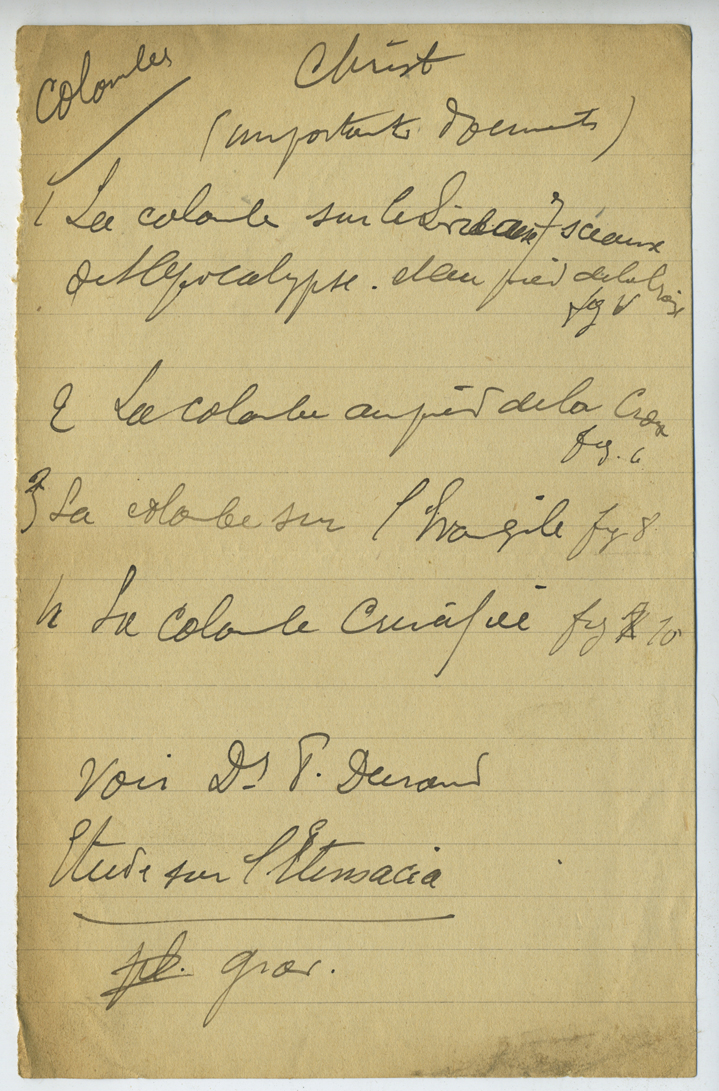 Colombes
Christ
(importants documents)
1 La colombe sur le Livre aux 7 sceaux
de l'Apocalypse. et au pied de la Croix
fig V
2 La colombe au pied de la Croix
fig. 6
3 La colombe sur l'Evangile fig 8
4 La colombe Crucifiée fig 10
Voir Ds P. Durand
Etude sur l'Etimacia
pl. grav.